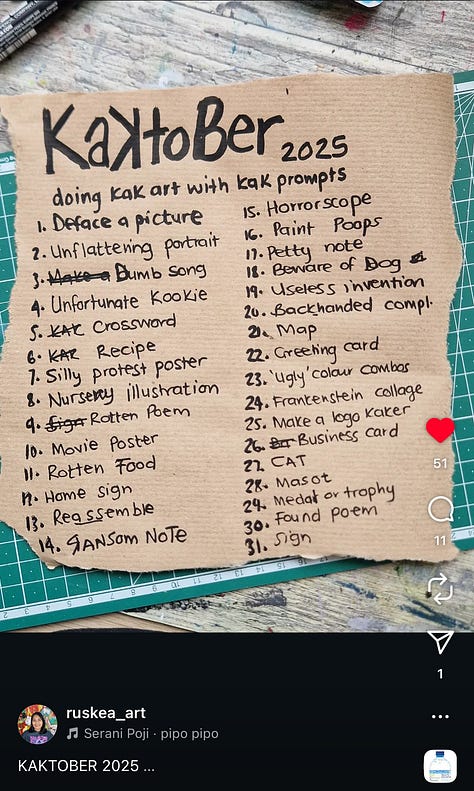 KaKtoBer 2025
doing kak art with kak prompts
1. Deface a picture
2. Unflattering portrait
3. Make a Dumb song
4. Unfortunate Kookie
5. KAK Crossword
6. KAK Recipe
7. Silly protest poster
8. Nursery illustration
9. Sign Rotten Poem
10. Movie Poster
11. Rotten Food
12. Home sign
13. Reassemble
14. RANSOM NOTE
15. Horrorscope
16. Paint Poops
17. Petty note
18. Beware of Dog
19. Useless invention
20. Backhanded compl.
21. Map
22. Greeting card
23. 'Ugly' colour combos
24. Frankenstein collage
25. Make a logo Kaker
26. Business card
27. CAT
28. Mascot
29. Medal or trophy
30. Found poem
31. Sign
51
11
1
ruskea_art
Serani Poji · pipo pipo
KAKTOBER 2025 ...